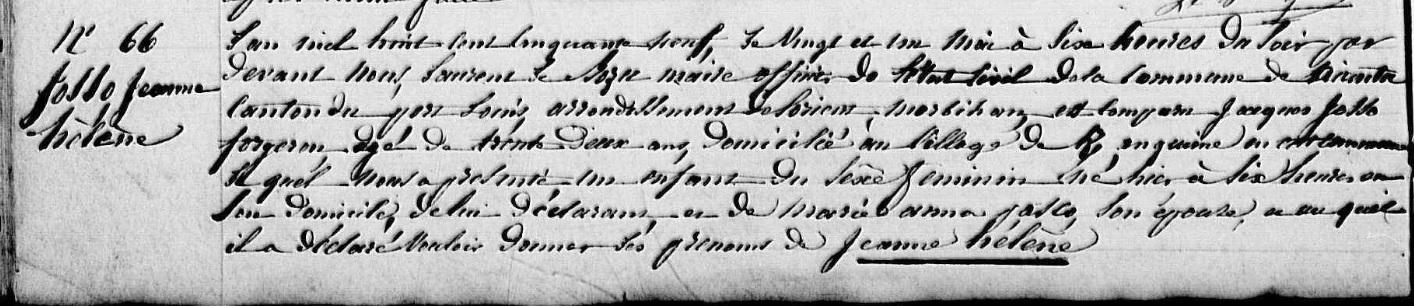 N° 66
Josso Jeanne
hélène
L'an mil huit cent cinquante neuf, le vingt et un Mai à six heures du soir par
devant Nous, Laurent Le maire officier de l'état civil de la commune de Riantec
Canton du port Louis, arrondissement de Lorient, Morbihan, est comparu Jacques Josso
forgeron agé de trente deux ans, domicilié au village de en cette commune
le quel Nous a présenté un enfant du sexe feminin né hier à six heures en
son domicile, de lui déclarant et de marie anna son épouse, et au quel
il a déclaré vouloir donner les prenoms de Jeanne hélène